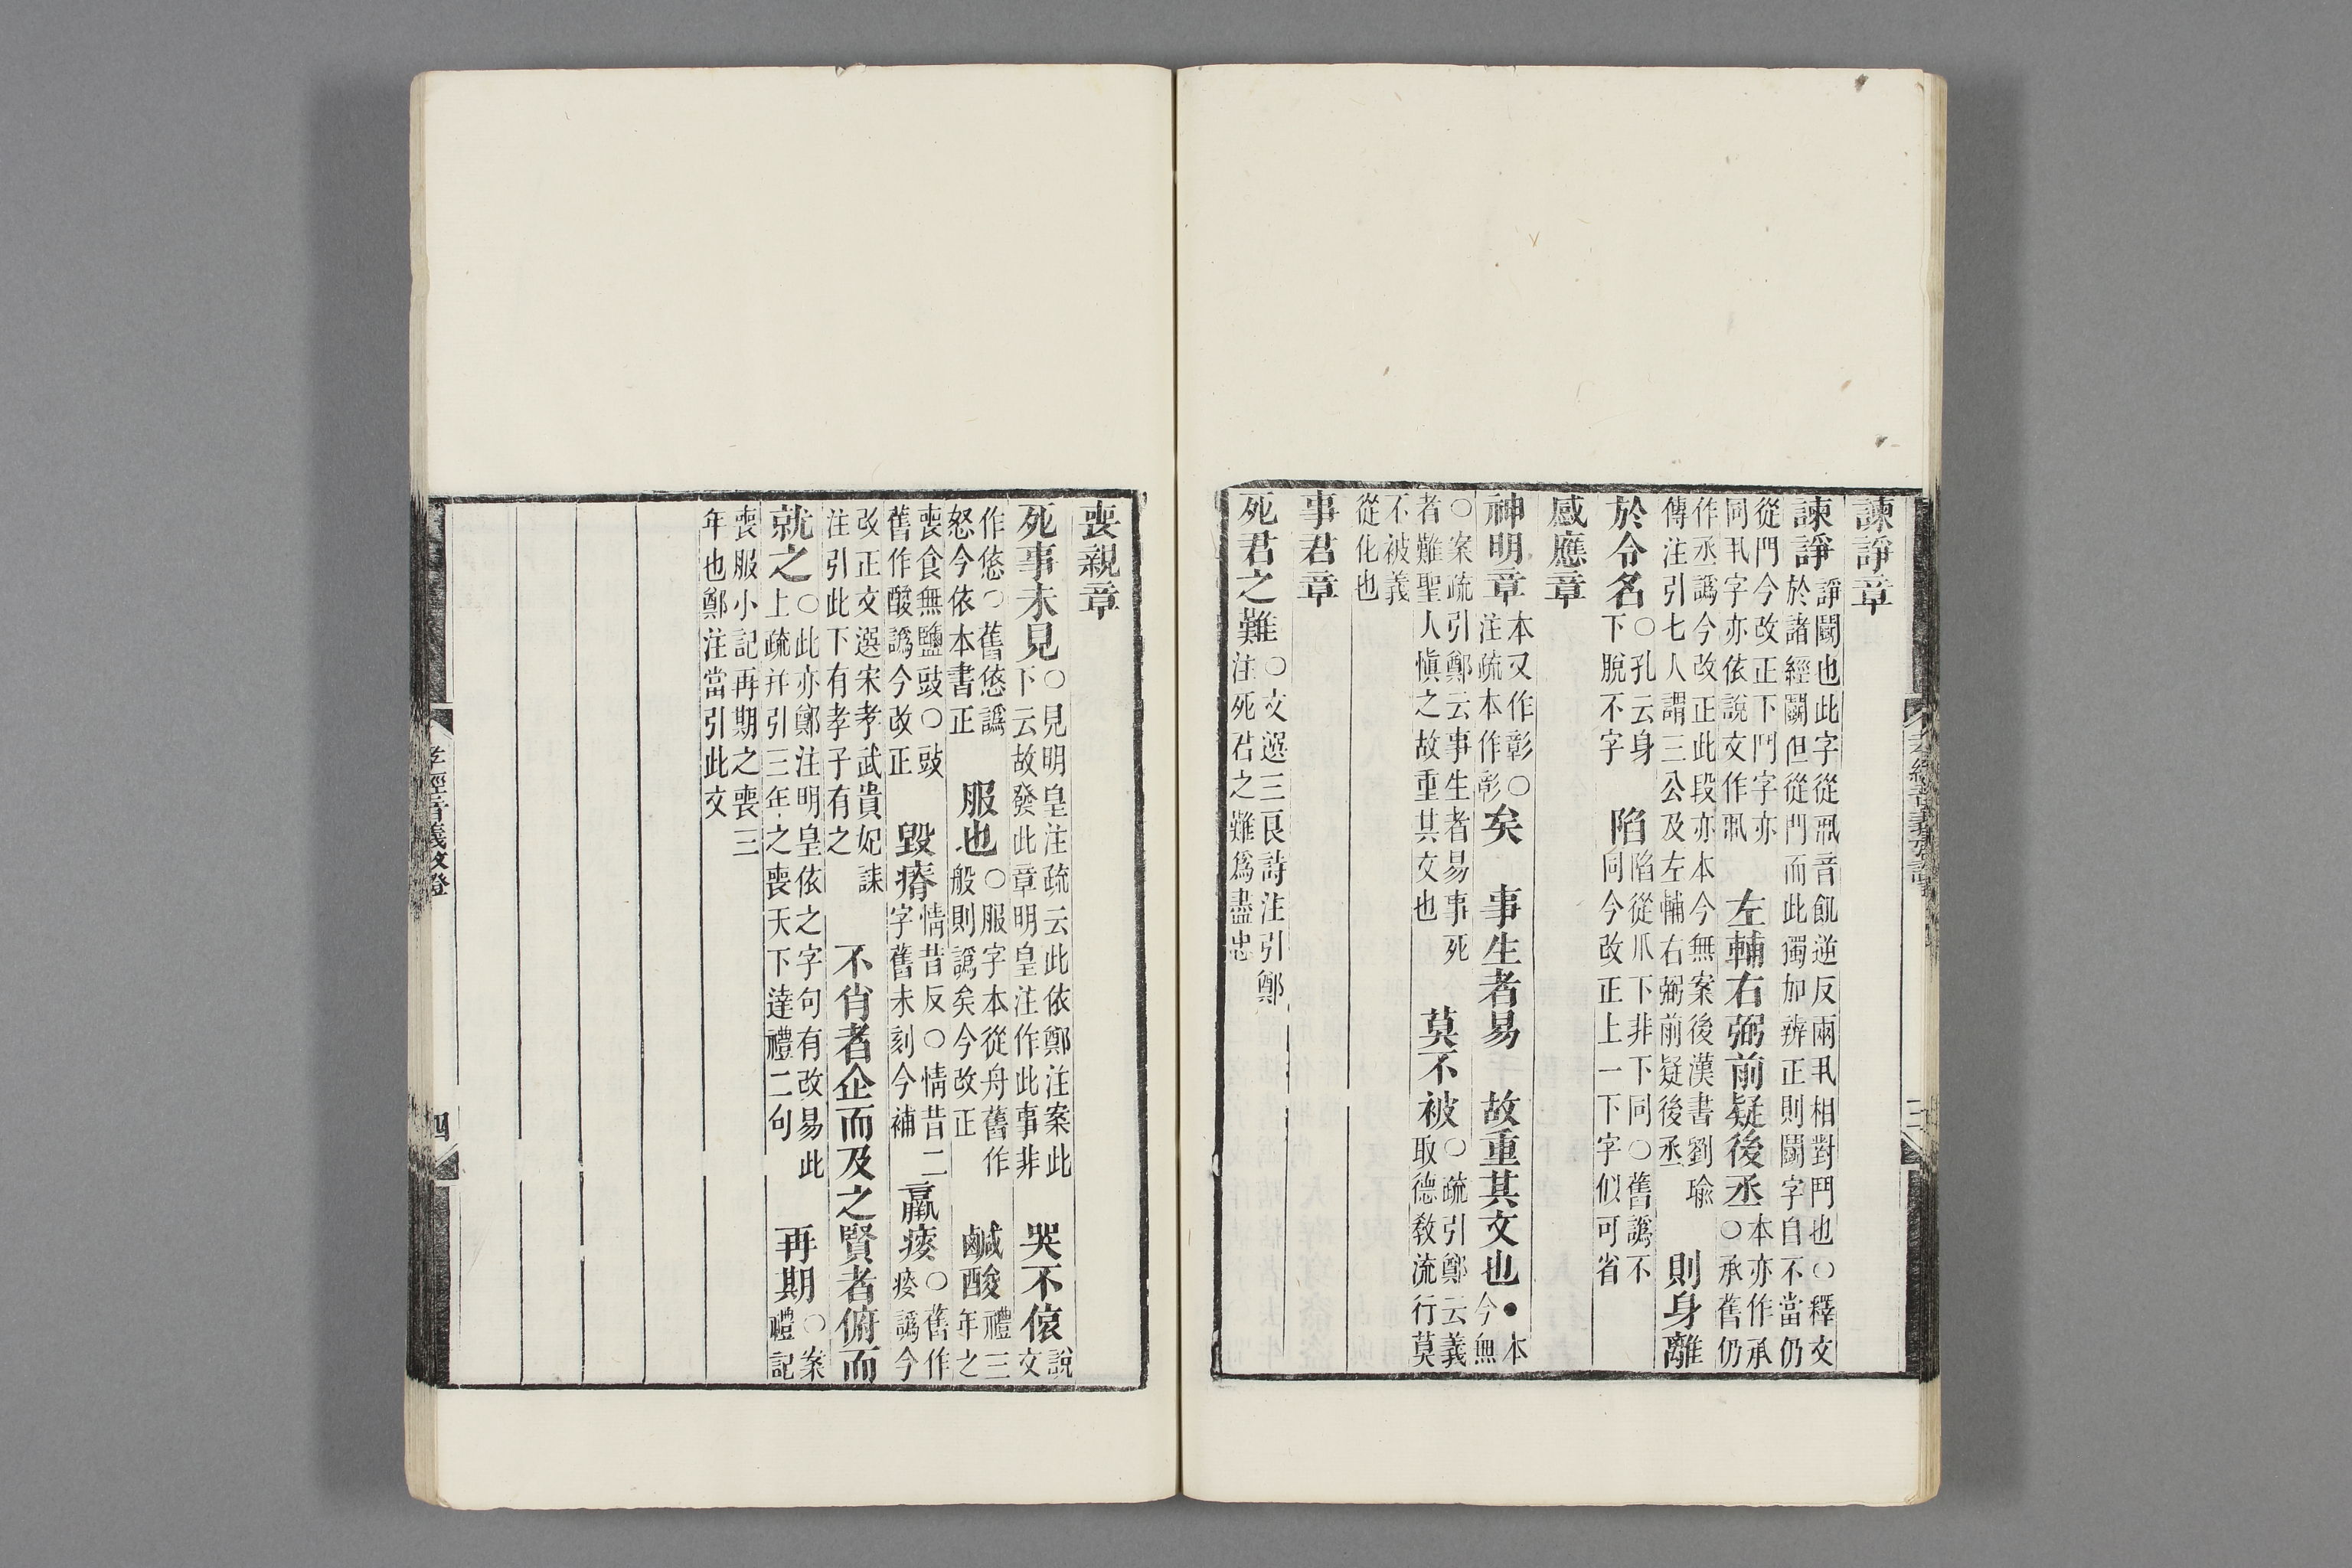 諫諍章
諫諍諍鬭也此字從丮音飢逆反兩丮相對鬥也〇釋文
於諸經鬭但從門而此獨加辨正則鬭字自不當仍
從門今改正下鬥字亦
同丮字亦依說文作丮
左輔右弼前疑後丞本亦作承
〇承舊仍
作丞譌今改正此段亦本今無案後漢書劉瑜
傳注引七人謂三公及左輔右弼前疑後丞
則身離
於令名〇孔云身
下脫不字
陷陷從爪下非下同〇舊譌不
同今改正上一下字似可省
感應章
神明章本又作彰〇
注疏本作彰
矣 事生者易 故重其文也●本
今無
〇案疏引鄭云事生者易事死
者難聖人愼之故重其文也
莫不被〇疏引鄭云義
取德敎流行莫
不被義
從化也
事君章
死君之難〇文選三良詩注引鄭
注死君之難爲盡忠
三
喪親章
死事未見〇見明皇注疏云此依鄭注案此
下云故發此章明皇注作此事非
哭不偯說
文
作㥋〇舊㥋譌
怒今依本書正
服也〇服字本從舟舊作
般則譌矣今改正
鹹酸禮三
年之
喪食無鹽豉〇豉
舊作酸譌今改正
毀瘠情昔反〇情昔二
字舊未刻今補
羸瘦〇舊作
譌今
改正文選宋孝武貴妃誄
注引此下有孝子有之
不肖者企而及之賢者俯而
就之〇此亦鄭注明皇依之字句有改易此
上疏幷引三年之喪天下達禮二句
再期〇案
禮記
喪服小記再期之喪三
年也鄭注當引此文
孝經音義攷證
四